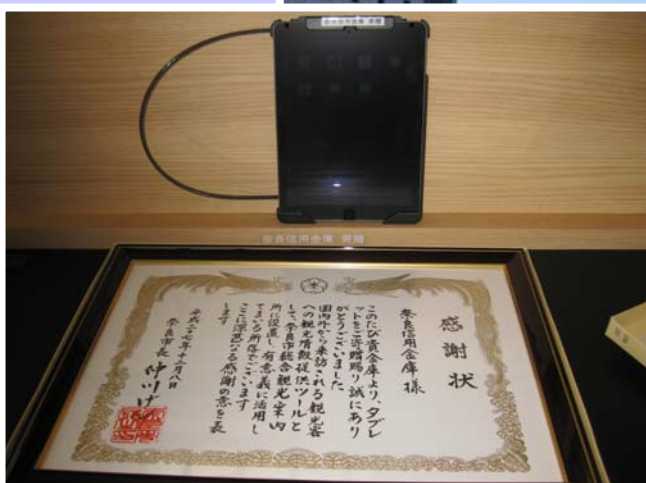 奈良信用金庫 寄贈
奈良信用金庫 寄贈
感謝状
奈良信用金庫 様
このたび貴金庫より、タブレ
ットをご寄贈賜り誠にあり
がとうございました。
国内外から来訪される観光客
への観光情報提供ツールと
して、奈良市総合観光案内
所に設置し、有意義に活用し
てまいる所存でございます
ここに深甚なる感謝の意を表
します
平成二十七年十二月八日
奈良市長 仲川げん